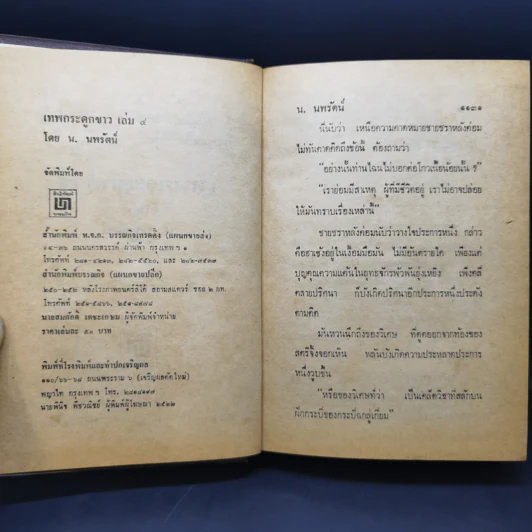 เทพกระดูกขาว เล่ม ๔
โดย น. นพรัตน์
จัดพิมพ์โดย
สำนักพิมพ์ พ.จ.ก. บรรณกิจเทรดดิ้ง (แผนกขายส่ง)
๑๔-๓๖ ถนนนครสวรรค์ ผ่านฟ้า กรุงเทพฯ ๑
สำนักพิมพ์บรรณกิจ (แผนกขายปลีก)
๒๕๐-๒๕๒ หลังโรงภาพยนตร์ลิโด้ สยามสแควร์ ซอย ๒ กท.
นายสมศักดิ์ เตชะเกษม ผู้จัดพิมพ์จำหน่าย
ราคาเล่มละ ๕๐ บาท
พิมพ์ที่โรงพิมพ์และทำปกเจริญผล
๑๑๐/๖๖-๖๘ ถนนพระราม ๖ (เจริญผลตัดใหม่)
พญาไท กรุงเทพฯ โทร. ๒๘๑๔๑๙๗
นายพินิจ พืชวณิชย์ ผู้พิมพ์ผู้โฆษณา ๒๕๒๒
น. นพรัตน์ ๑๑๓๑
นี่นับว่า เหนือความคาดหมายชายชราหลังค่อม
ไม่ทันคาดคิดถึงข้อนี้ ต้องถามว่า
"อย่างนั้นท่านไฉนไม่บอกต่อโกวเนี้ยน้อยนั้น ?"
"เราย่อมมีสาเหตุ ผู้ที่มีชีวิตอยู่ เราไม่อาจปล่อย
ให้มันทราบเรื่องเหล่านี้"
ชายชราหลังค่อมนับว่าวางใจประการหนึ่ง กล่าว
คือดาบยังอยู่ในเงื้อมมือมัน ไม่มีอันตรายใด เพียงแต่
บุญคุณความแค้นในยุทธจักรพัวพันยุ่งเหยิง เพิ่งคลี่
คลายปริศนา ก็บังเกิดปริศนาอีกประการหนึ่งประดัง
ตามติด
มันหวนนึกถึงของวิเศษ ที่ขุดออกจากท้องของ
สตรีจิ้งจอกเหิน พลันบังเกิดความประหลาดประการ
หนึ่งวูบขึ้น
"หรือของวิเศษที่ว่า เป็นเคล็ดวิชาที่สลักบน
ฝักกระบี่ของกระบี่ฉกลูเกี่ยม"